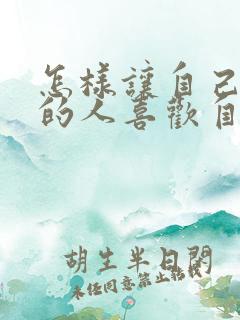 怎樣讓自己
的人喜歡自
胡生半日閑
未經同意禁止轉載